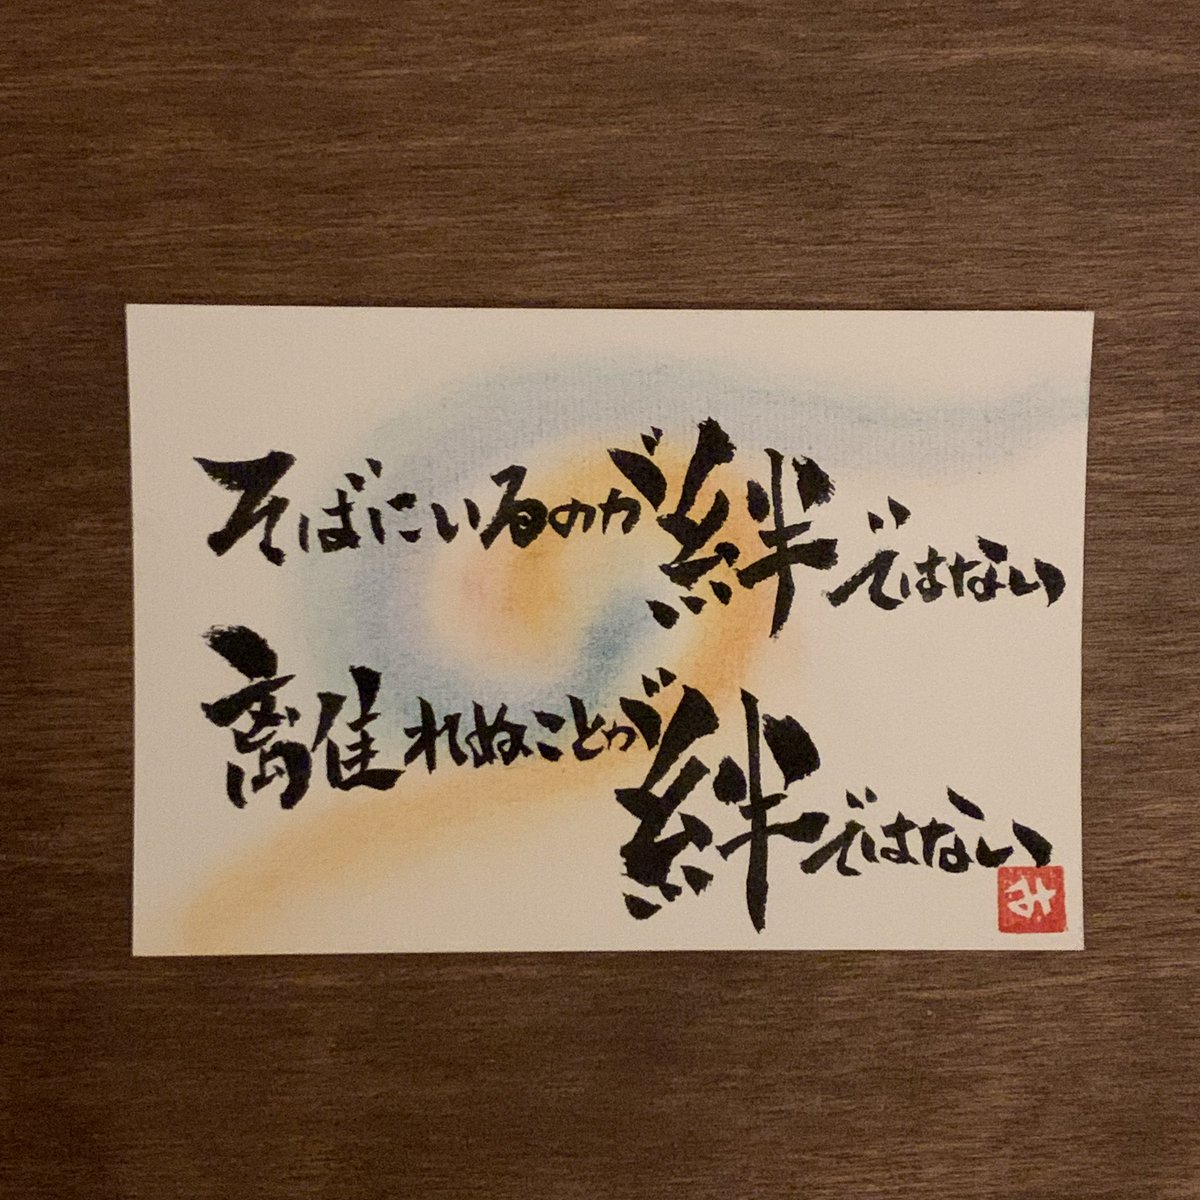 そばにいるのが絆ではない
離れぬことが絆ではない
み